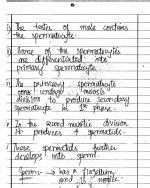 i) The testes of male contains
the spermatocyte.
ii) Some of the spermatocytes
are differentiated into
primary spermatocyte.
iii) The primary spermatocyte
meiosis
division to produce secondary
spermatocyte in I phase.
iv) In the second meiotic division
It produces 4 spermatids.
v) Those spermatids further
develops into sperm.
Sperm → has a flagellum,
and its motile